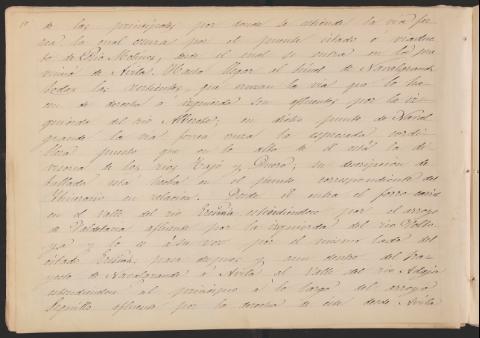 de los principales por donde se estiende la via fer-
rea la cual cruza por el puente citado ó viaducto
de Rio Molinos, desde el cual se entra en la pro
vincia de Avila. Hasta llegar al túnel de Navalgrande
todas las vertientes, que cruzan la via que lo ha-
cen de derecha á izquierda son afluentes por la iz-
quierda del rio Alberche; en dicho punto de Naval
grande la via ferrea cruza la espresada cordi-
llera punto que en lo alto de él está la di-
visoria de los rios Tajo y Duero; su descripcion de-
tallada está hecha en el punto correspondiente del
Itinerario en relacion. Desde él entra el ferro-carril
en el Valle del rio estendiendose por el arroyo
de afluente por la izquierda del rio Volto-
ya y lo es á su vez por el mismo lado del
citado para despues y aun dentro del tra-
yecto de Navalgrande á Avila al Valle del rio Adaja
estendiendose al principio á lo largo del arroyo
afluente por la derecha de este desde Avila